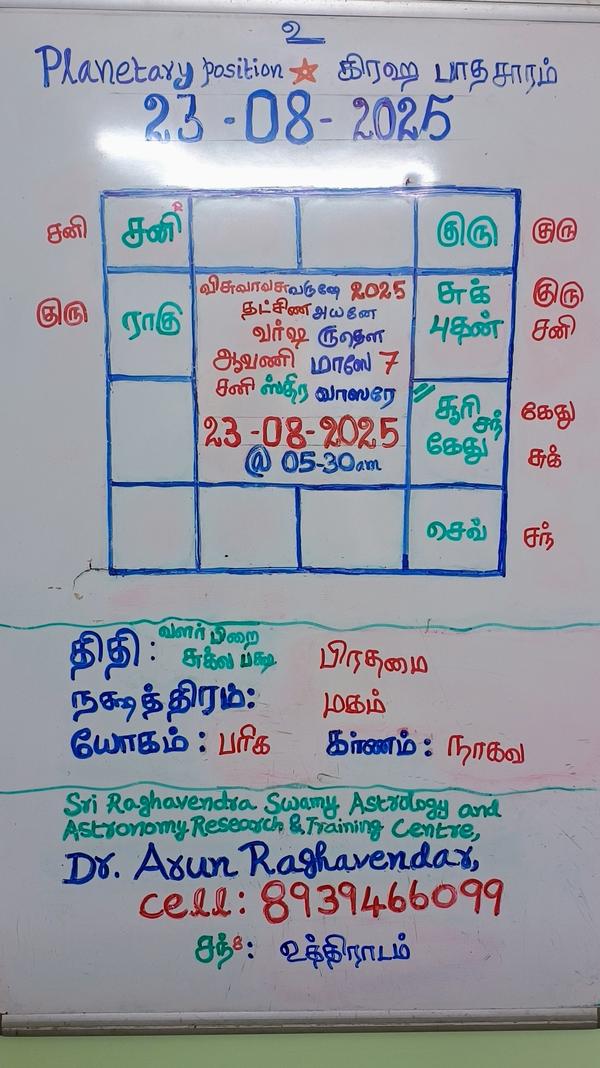 உ
Planetary position ☆ கிரஹ பாதசாரம்
23-08-2025
சனி சனி குரு குரு
குரு ராகு சுக் புதன் குரு சனி
விசுவாவசுவருஷே 2025
தட்சிண அயனே
வர்ஷ ருதௌ
ஆவணி மாஸே 7
சனி ஸ்திர வாஸரே
23-08-2025
@ 05-30am
சூரி சந் கேது கேது சுக்
செவ் சந்
திதி: வளர் பிறை சுக்ல பக்ஷ பிரதமை
நக்ஷத்திரம்: மகம்
யோகம்: பரிக கர்ணம்: நாகவ
Sri Raghavendra Swamy Astrology and
Astronomy Research & Training Centre,
Dr. Arun Raghavendar,
Cell: 8939466099
சந்8: உத்திராடம்